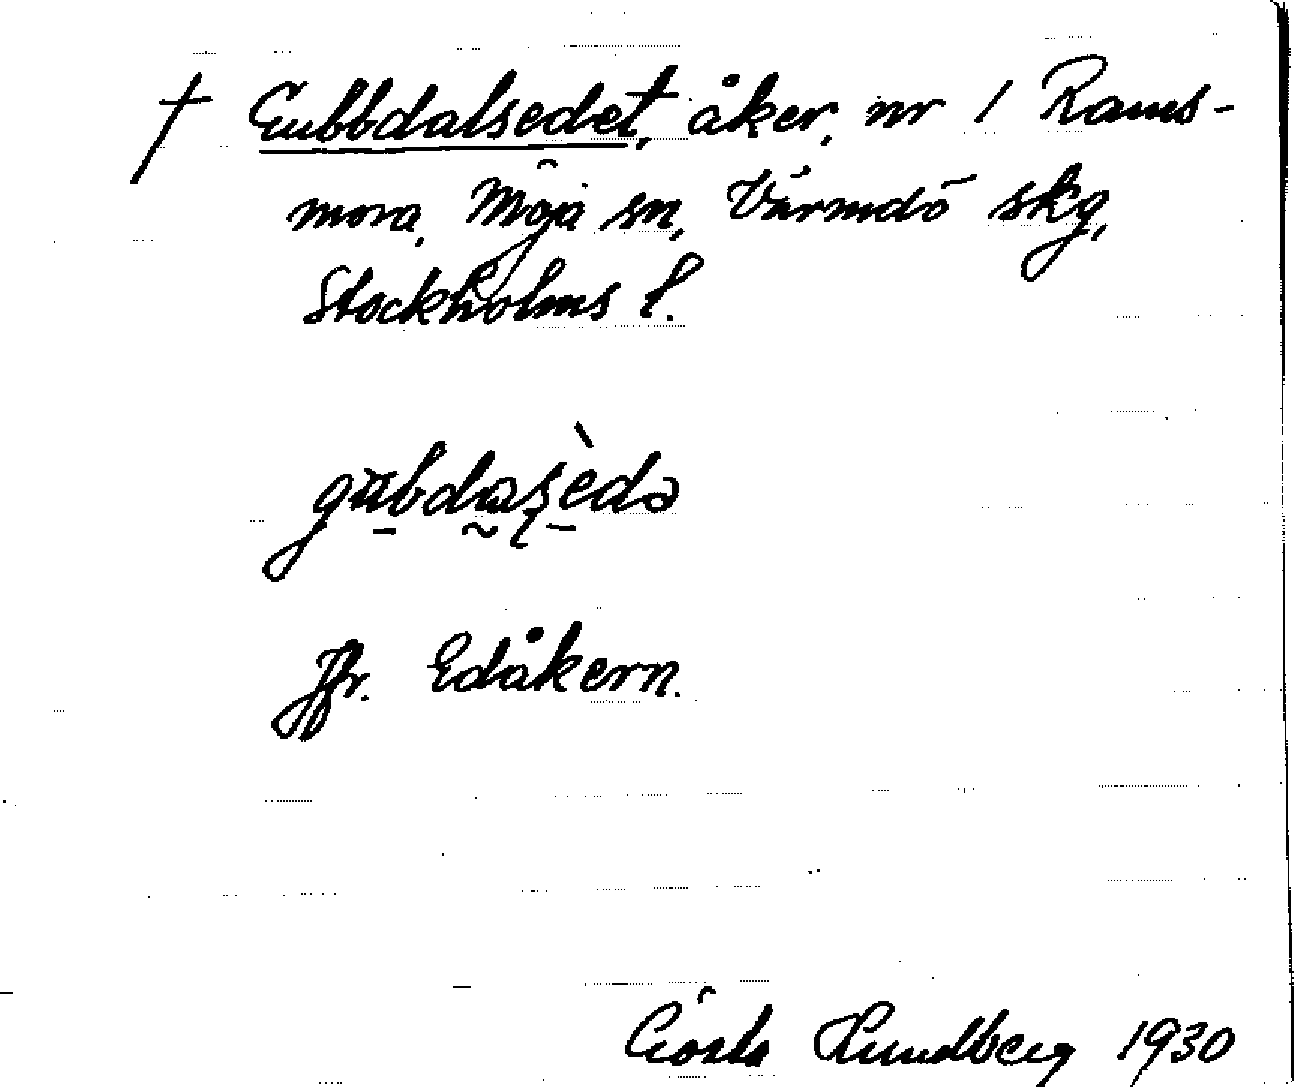 † Gubbdalsedet, åker, nr 1 Rams-
mora, Möja sn, Värmdö skg,
Stockholms l.
gubdaʂèdə
Jfr. Edåkern.
Gösta Lundberg 1930